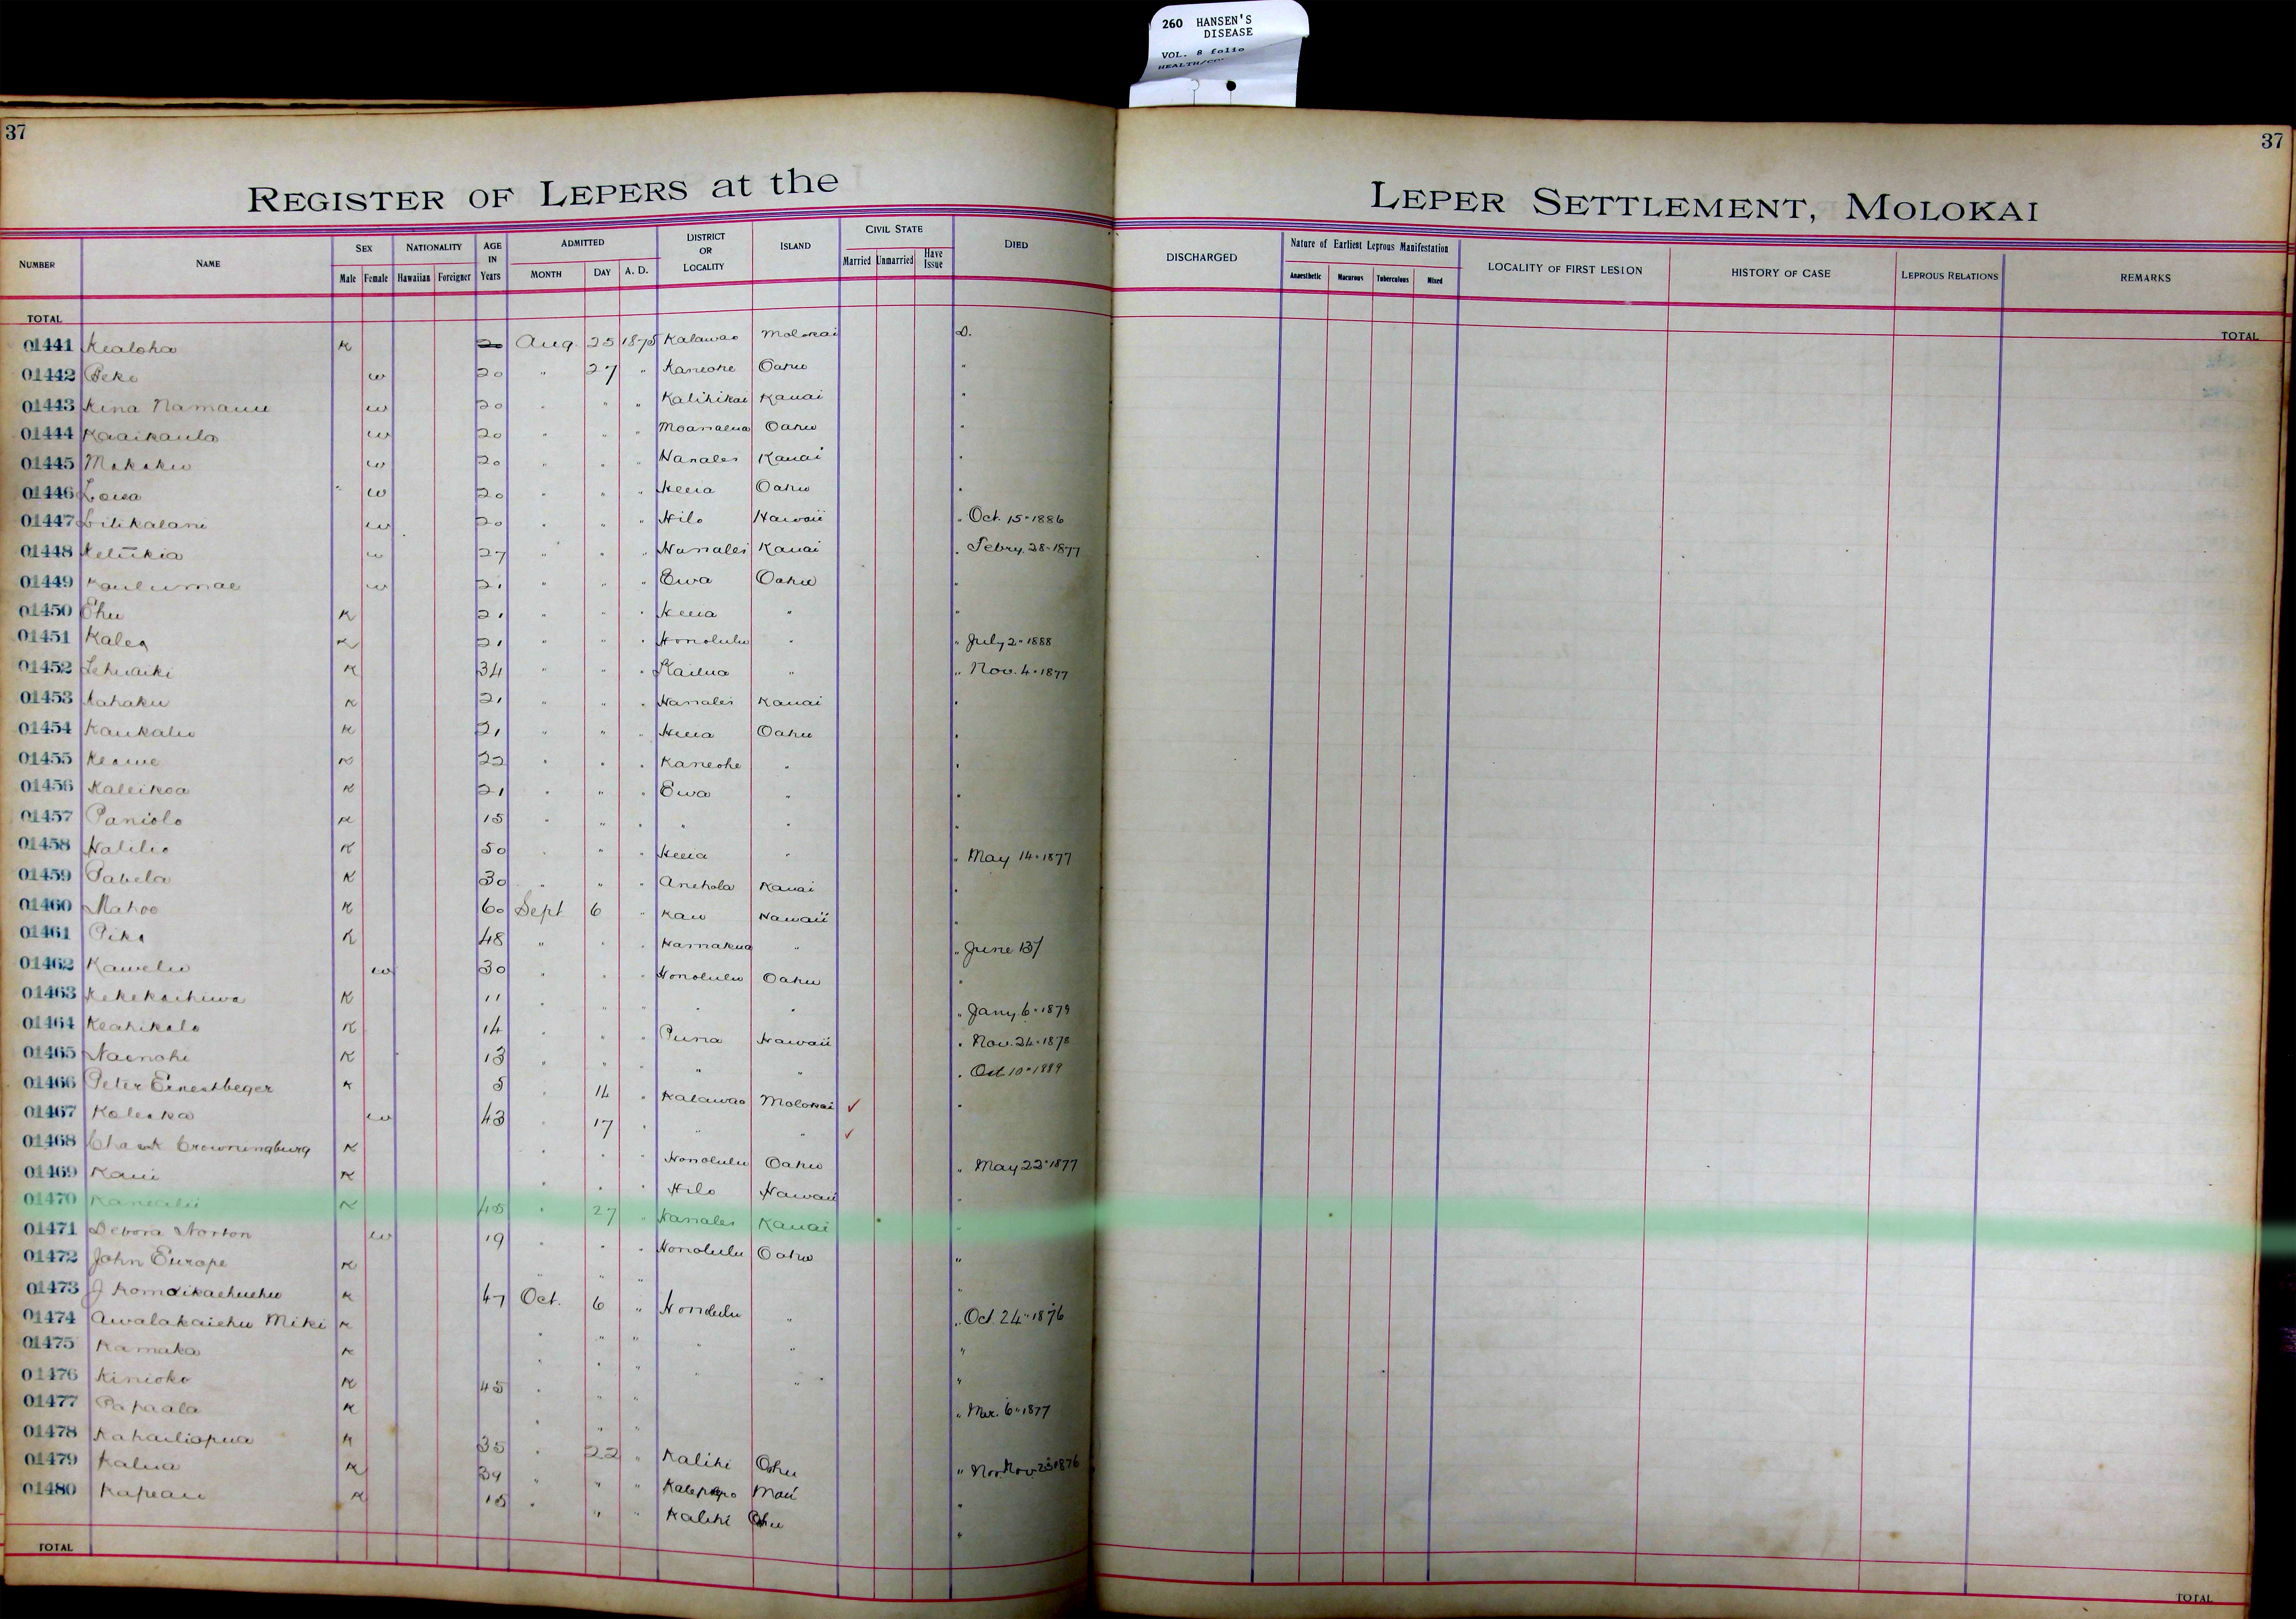 260 HANSEN'S
DISEASE
VOL. 8 folio
37
37
REGISTER OF LEPERS at the LEPER SETTLEMENT, MOLOKAI
NUMBER NAME SEX Male Female NATIONALITY Hawaiian Foreigner AGE IN Years ADMITTED MONTH DAY A. D. DISTRICT OR LOCALITY ISLAND CIVIL STATE Married Unmarried Have Issue DIED DISCHARGED Nature of Earliest Leprous Manifestation Anaesthetic Macurous Tuberculous Mixed LOCALITY OF FIRST LESION HISTORY OF CASE LEPROUS RELATIONS REMARKS
TOTAL TOTAL
01441 Kealoha K 20 Aug. 25 1875 Kalawao Molokai D.
01442 Peke w 20 " 27 " Kaneohe Oahu "
01443 Kina Namauu w 20 " " " Kalihikai Kauai "
01444 Kaaikaula w 20 " " " Moanalua Oahu "
01445 w 20 " " " Hanalei Kauai "
01446 w 20 " " " Heeia Oahu "
01447 Lilikalani w 20 " " " Hilo Hawaii " Oct. 15 " 1886
01448 w 27 " " " Hanalei Kauai " Febry. 28 - 1877
01449 Kaulumae w 21 " " " Ewa Oahu "
01450 Ehu K 21 " " " Heeia " "
01451 Kalea K 21 " " " Honolulu " " July 2 " 1888
01452 Lehuaiki K 34 " " " Kailua " " Nov. 4 " 1877
01453 Kahaku K 21 " " " Hanalei Kauai "
01454 Kaukaliu K 21 " " " Heeia Oahu "
01455 Keawe K 22 " " " Kaneohe " "
01456 Kaleikoa K 21 " " " Ewa " "
01457 Paniolo K 15 " " " " " "
01458 Halilio K 50 " " " Heeia " " May 14 " 1877
01459 Pabela K 30 " " " Anehola Kauai "
01460 Mahoe K 60 Sept 6 " Kau Hawaii "
01461 Pika K 48 " " " Hamakua " " June 13/
01462 Kawelu w 30 " " " Honolulu Oahu "
01463 Kekekachiwa K 11 " " " " " " Jany. 6 " 1879
01464 Keahikolo K 14 " " " Puna Hawaii " Nov. 24 " 1878
01465 Nainohi K 13 " " " " " " Oct 10 " 1889
01466 Peter Ernestbeger K 5 " 14 " Kalawao Molokai ✓ "
01467 Kaleika w 43 " 17 " " " ✓
01468 Crowningburg K " " " Honolulu Oahu " May 22 " 1877
01469 Kaui K " " " Hilo Hawaii "
01470 Kanealii K 45 " 27 " Hanalei Kauai "
01471 Debora Norton w 19 " " " Honolulu Oahu "
01472 John Europe K " " " "
01473 J K 47 Oct. 6 " Honolulu " " Oct. 24 " 1876
01474 Awalakaiehu Miki K " " " " " "
01475 Kamaka K " " " " " "
01476 Kinioko K 45 " " " " Mar. 6 " 1877
01477 Papaala K " " "
01478 Kahailiopua K 35 " 22 " Kalihi Oahu " Nov. 23 1876
01479 Kalua K 39 " " " Kalepopo Maui "
01480 Kapeau K 15 " " " Kalihi Oahu "
TOTAL TOTAL